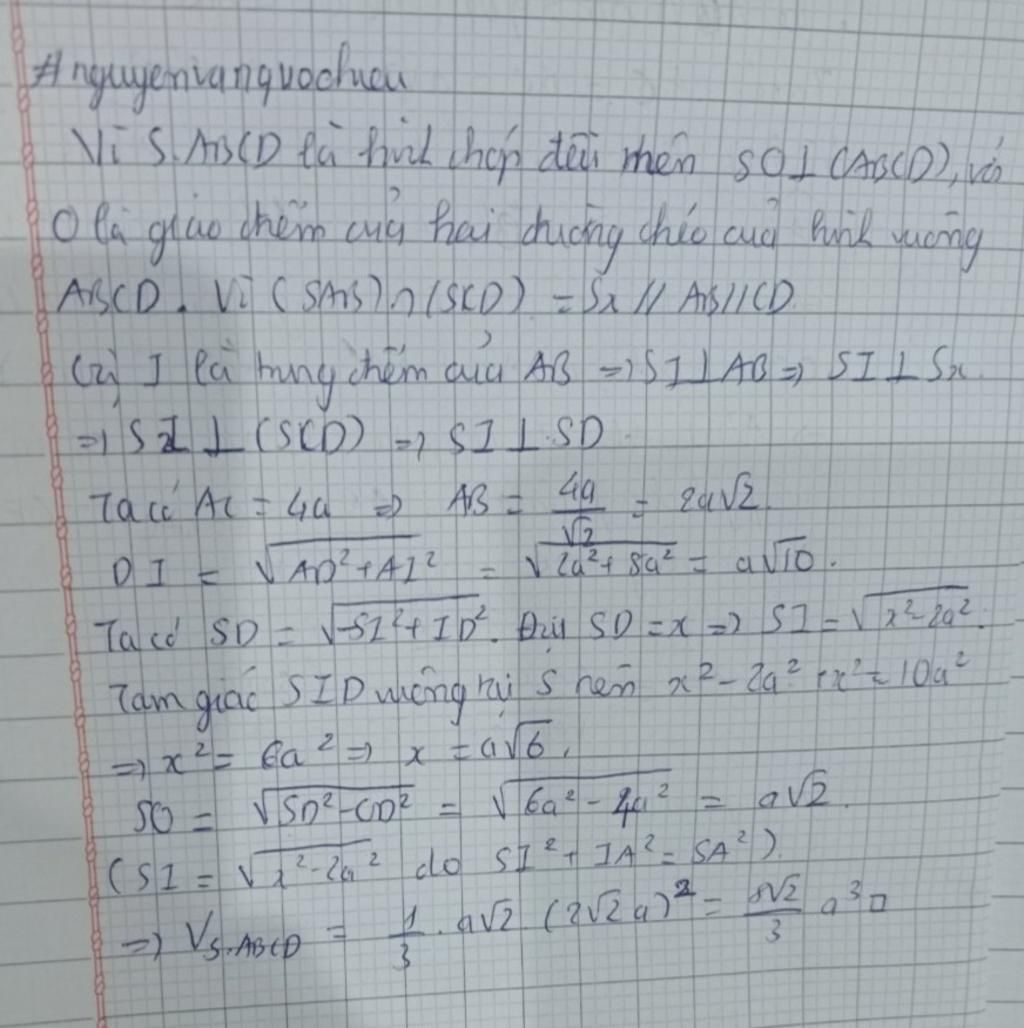 #nguyenvanquochieu
Vì S.ABCD là hình chóp đều nên SO⊥(ABCD), với
O là giao điểm của hai đường chéo của hình vuông
ABCD. Vì (SAB)∩(SCD) = Sx // AB//CD.
Gọi I là trung điểm của AB ⇒ SI⊥AB ⇒ SI⊥Sx
⇒ SI ⊥ (SCD) ⇒ SI⊥SD
Ta có AC = 4a ⇒ AB = 4a/√2 = 2a√2.
DI = √(AD²+AI²) = √(2a²+8a²) = a√10.
Ta có SD = √(SI²+ID²). Đặt SD = x ⇒ SI = √(x²-2a²).
Tam giác SID vuông tại S nên x²-2a²+x²=10a²
⇒ x² = 6a² ⇒ x = a√6.
SO = √(SD²-OD²) = √(6a²-4a²) = a√2.
(SI = √(x²-2a²) do SI²+IA²=SA²).
⇒ V_S.ABCD = 1/3 . a√2 (2√2a)² = 8√2/3 a³ □